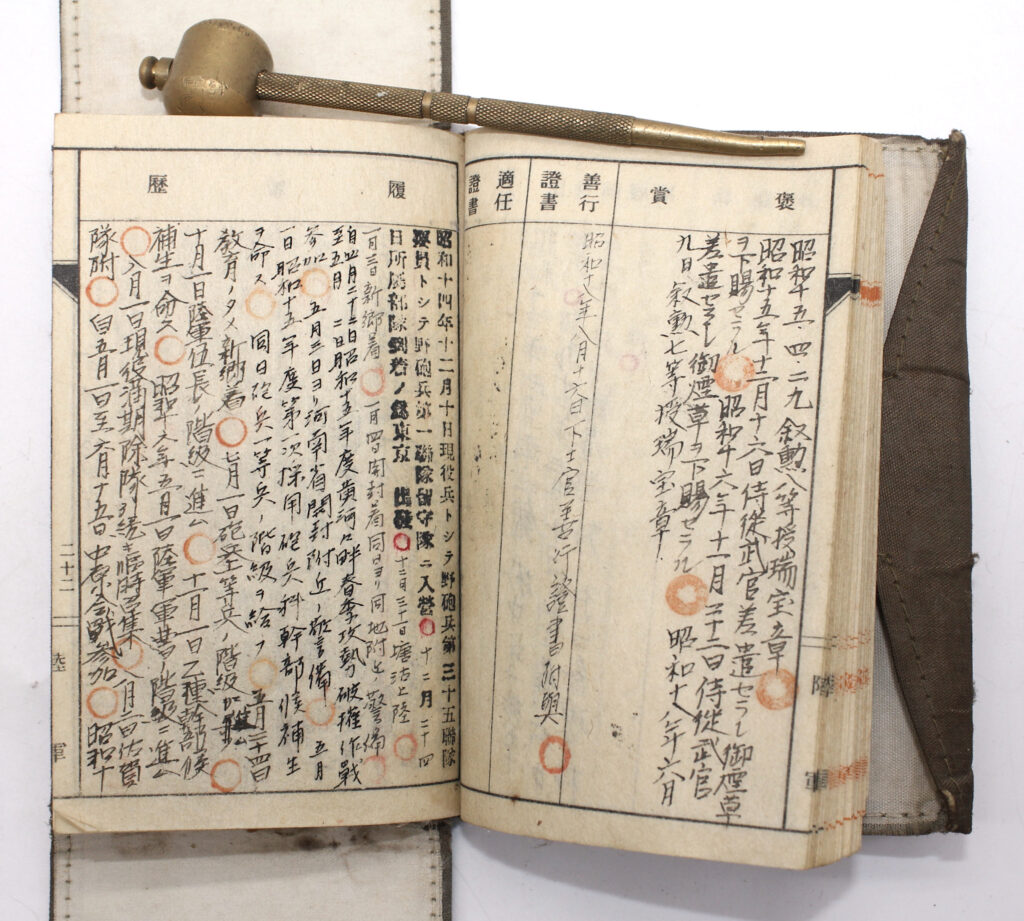 褒賞
昭和十五・四・二九叙勲八等授瑞宝章
昭和十五年十一月十六日侍従武官差遣セラレ御煙草
ヲ下賜セラル 昭和十六年十一月二十二日侍従武官
差遣セラレ御煙草ヲ下賜セラル 昭和十八年六月
九日叙勲七等授瑞宝章
善行證書
昭和十八年八月十六日下士官善行證書附與
適任證書
履歴
昭和十四年十二月十日現役兵トシテ野砲兵第三十五聯隊
要員トシテ野砲兵第一聯隊留守隊ニ入營 十二月二十四
日所属部隊到着ノ為東京出發 十二月三十一日塘沽上陸
一月三日新郷着 一月四日開封着同日ヨリ同地附近ノ警備
自四月二十二日昭和十五年度黄河々畔春季攻勢破摧作戦
至五月二日
参加 五月三日ヨリ河南省開封附近ノ警備 五月
一日昭和十五年度第一次採用砲兵科幹部候補生
ヲ命ス 同日砲兵一等兵ノ階級ヲ給フ 五月二十四日
教育ノタメ新郷着 七月一日砲兵上等兵ノ階級ニ進ム
十月一日陸軍伍長ノ階級ニ進ム 十一月一日乙種幹部候
補生ヲ命ス 昭和十六年五月一日陸軍軍曹ノ階級ニ進ム
八月一日現役満期除隊引続キ臨時召集 八月二日佐賀
隊附 自五月一日至六月十五日中原会戦参加 昭和十
二十二
陸軍
陸軍